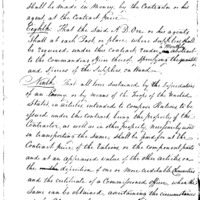 shall be made in Money, by the Contractor or his
agent at the Contract price.
Eighth. That the said A. D. Orr, or his agents
shall at each Post or place where Supplies shall
be required, under this Contract, render Monthly abstract
to the Commanding officer thereof, specifying the quantities
and Species of the Supplies on hand.
Ninth. That all loss sustained by the depredations
of an Enemy, or by means of the Troops of the United
States in articles intended to compose Rations to be
issued under this Contract being the property of the
Contractor, as well as in other property necessarily used
in transporting the same, shall be paid for at the
Contract price of the Rations, or the component parts
and at an appraised value of the other articles on
the deposition of one or more creditable Characters
and the certificate of a Commissioned officer, when the
same can be obtained, ascertaining the circumstances